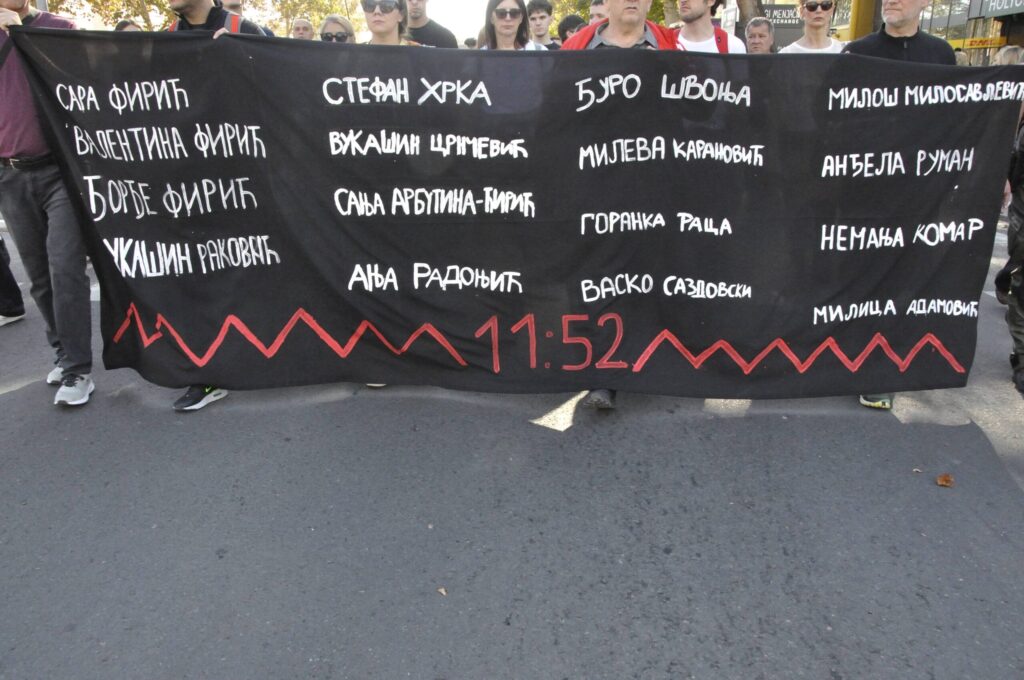 САРА ФИРИЋ
ВАЛЕНТИНА ФИРИЋ
ЂОРЂЕ ФИРИЋ
УКАШИН РАКОВИЋ
СТЕФАН ХРКА
ВУКАШИН ЦРНЧЕВИЋ
САЊА АРБУТИНА-ЋИРИЋ
АЊА РАДОЊИЋ
ЂУРО ШВОЊА
МИЛЕВА КАРАНОВИЋ
ГОРАНКА РАЦА
ВАСКО САЗДОВСКИ
МИЛОШ МИЛОСАВЉЕВИЋ
АНЂЕЛА РУМАН
НЕМАЊА КОМАР
МИЛИЦА АДАМОВИЋ
11:52
DHL